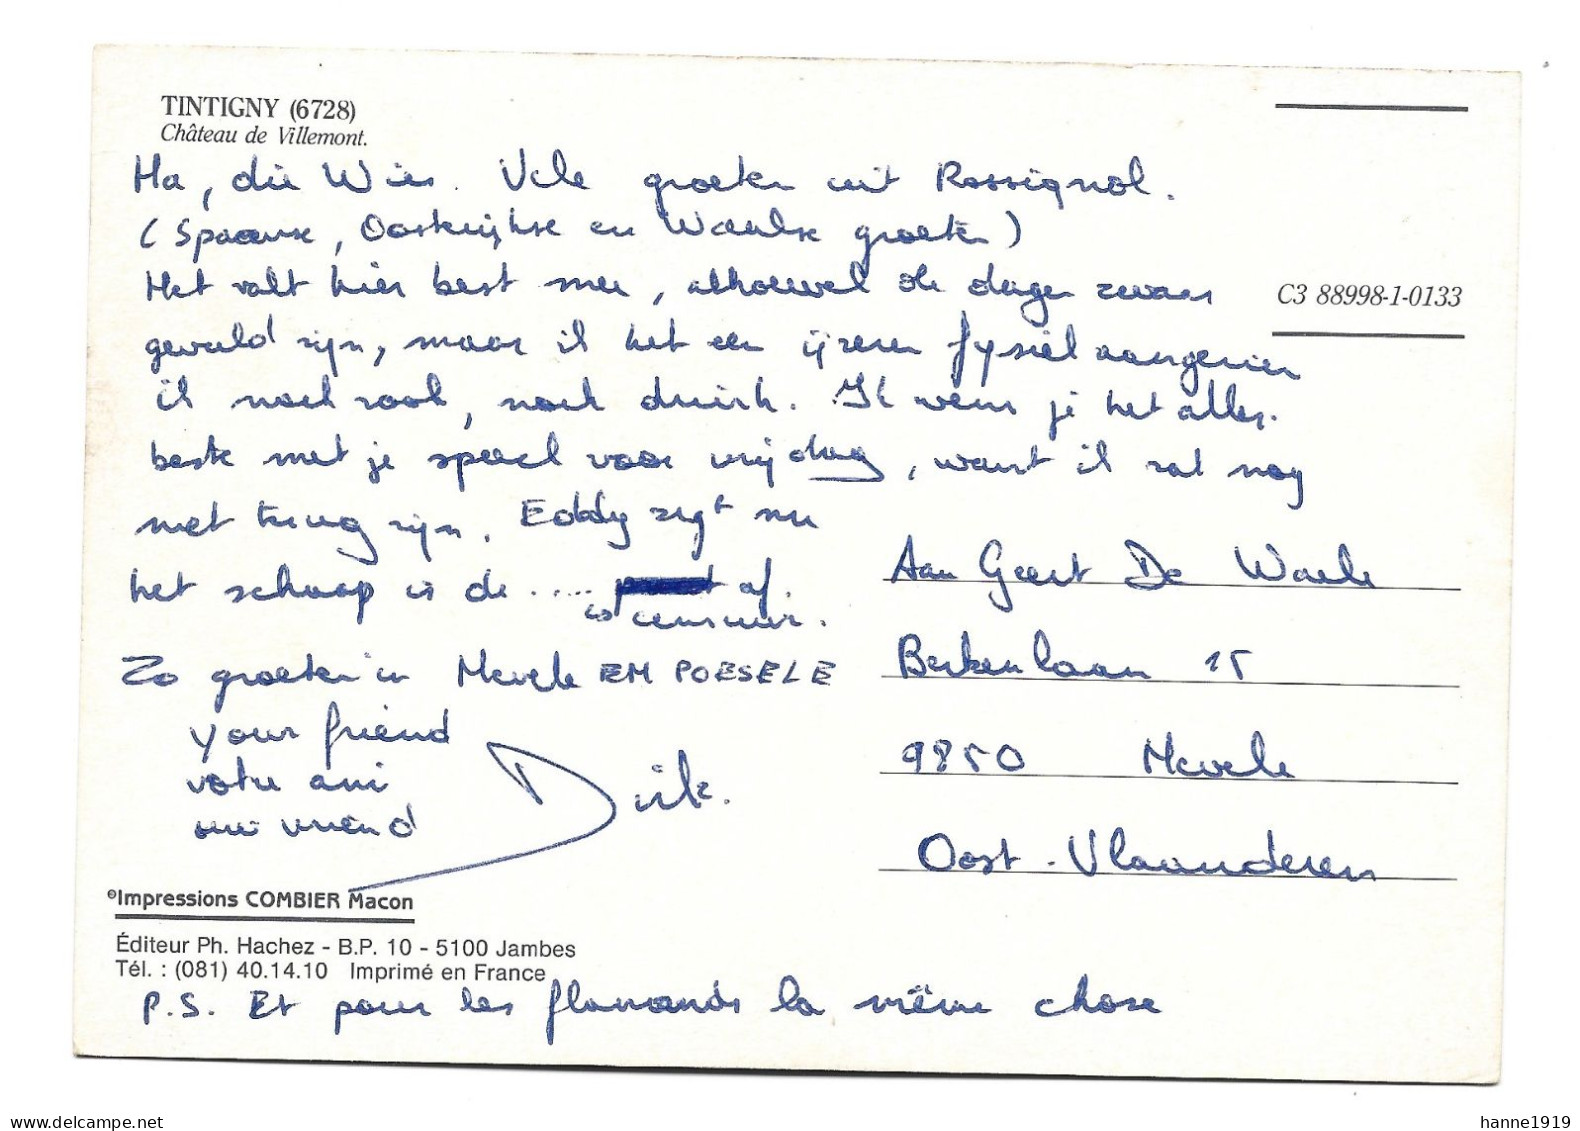 TINTIGNY (6728)
Château de Villemont.
Ha, die Wies. Vele groeten uit Rossignol.
(Spaanse, Oostenrijkse en Waalse groeten)
Het valt hier best mee, alhoewel de dagen zwaar
C3 88998-1-0133
gevuld zijn, maar ik heb een ijzeren fysiek aangezien
ik noch rook, noch drink. Ik wens je het aller-
beste met je speech voor vrijdag, want ik zal nog
niet terug zijn. Eddy zegt nu
het schaap is de ..... af.
is censuur.
Zo groeten in Nevele EM POESELE
your friend
votre ami
uw vriend
Dirk.
Aan Geert De Waele
Berkenlaan 15
9850 Nevele
Oost-Vlaanderen
©Impressions COMBIER Macon
Éditeur Ph. Hachez - B.P. 10 - 5100 Jambes
Tél. : (081) 40.14.10 Imprimé en France
P.S. Et pour les flamands la même chose
www.delcampe.net
hanne1919